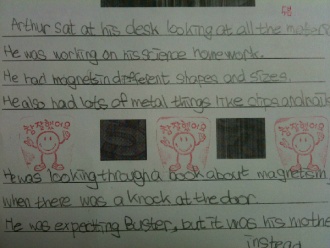 Arthur sat at his desk looking at all the
He was working on his science homework.
He had magnets in different shapes and sizes.
He also had lots of metal things like clips and nails
참 잘했어요 참 잘했어요 참 잘했어요
He was looking through a book about magnetism
when there was a knock at the door.
He was expecting Buster, but it was his mother
instead